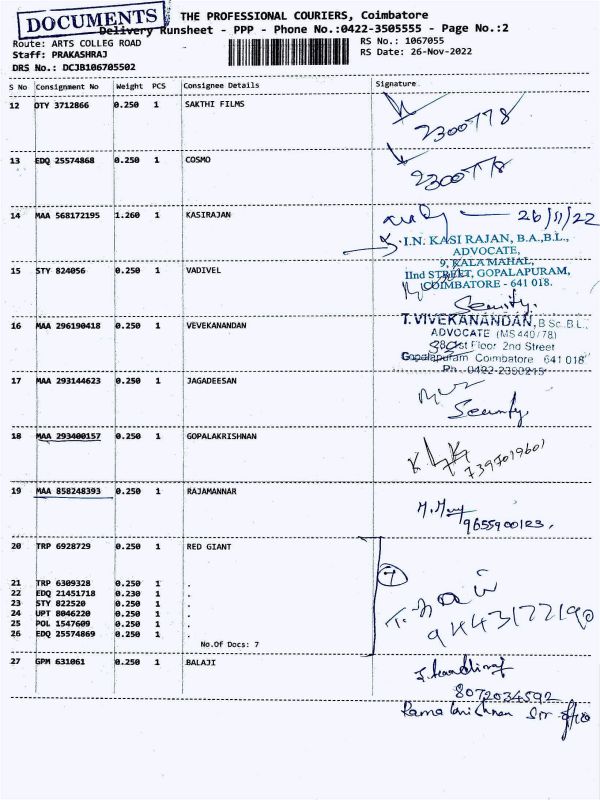 DOCUMENTS
THE PROFESSIONAL COURIERS, Coimbatore
Delivery Runsheet - PPP - Phone No.:0422-3505555 - Page No.:2
Route: ARTS COLLEG ROAD
RS No.: 1067055
Staff: PRAKASHRAJ
RS Date: 26-Nov-2022
DRS No.: DCJB106705502
S No Consignment No Weight PCS Consignee Details Signature
12 OTY 3712866 0.250 1 SAKTHI FILMS
2300778
13 EDQ 25574868 0.250 1 COSMO
2300778
14 MAA 568172195 1.260 1 KASIRAJAN
26/11/22
I.N. KASI RAJAN, B.A.,B.L.,
ADVOCATE,
9, KALA MAHAL,
IInd STREET, GOPALAPURAM,
COIMBATORE - 641 018.
15 STY 824056 0.250 1 VADIVEL
Security.
16 MAA 296190418 0.250 1 VEVEKANANDAN
T. VIVEKANANDAN, B.Sc.,B.L.,
ADVOCATE (MS 440/78)
1st Floor 2nd Street
Gopalapuram Coimbatore 641 018
Ph : 0422-2390215
17 MAA 293144623 0.250 1 JAGADEESAN
Security
18 MAA 293400157 0.250 1 GOPALAKRISHNAN
7397019601
19 MAA 858248393 0.250 1 RAJAMANNAR
9655900123,
20 TRP 6928729 0.250 1 RED GIANT
21 TRP 6309328 0.250 1 .
22 EDQ 21451718 0.230 1 .
23 STY 822520 0.250 1 .
24 UPT 8046220 0.250 1 .
25 POL 1547609 0.250 1 .
26 EDQ 25574869 0.250 1 .
No.Of Docs: 7
7
9443172190
27 GPM 631061 0.250 1 BALAJI
8072034592
Rama Krishnan Sir